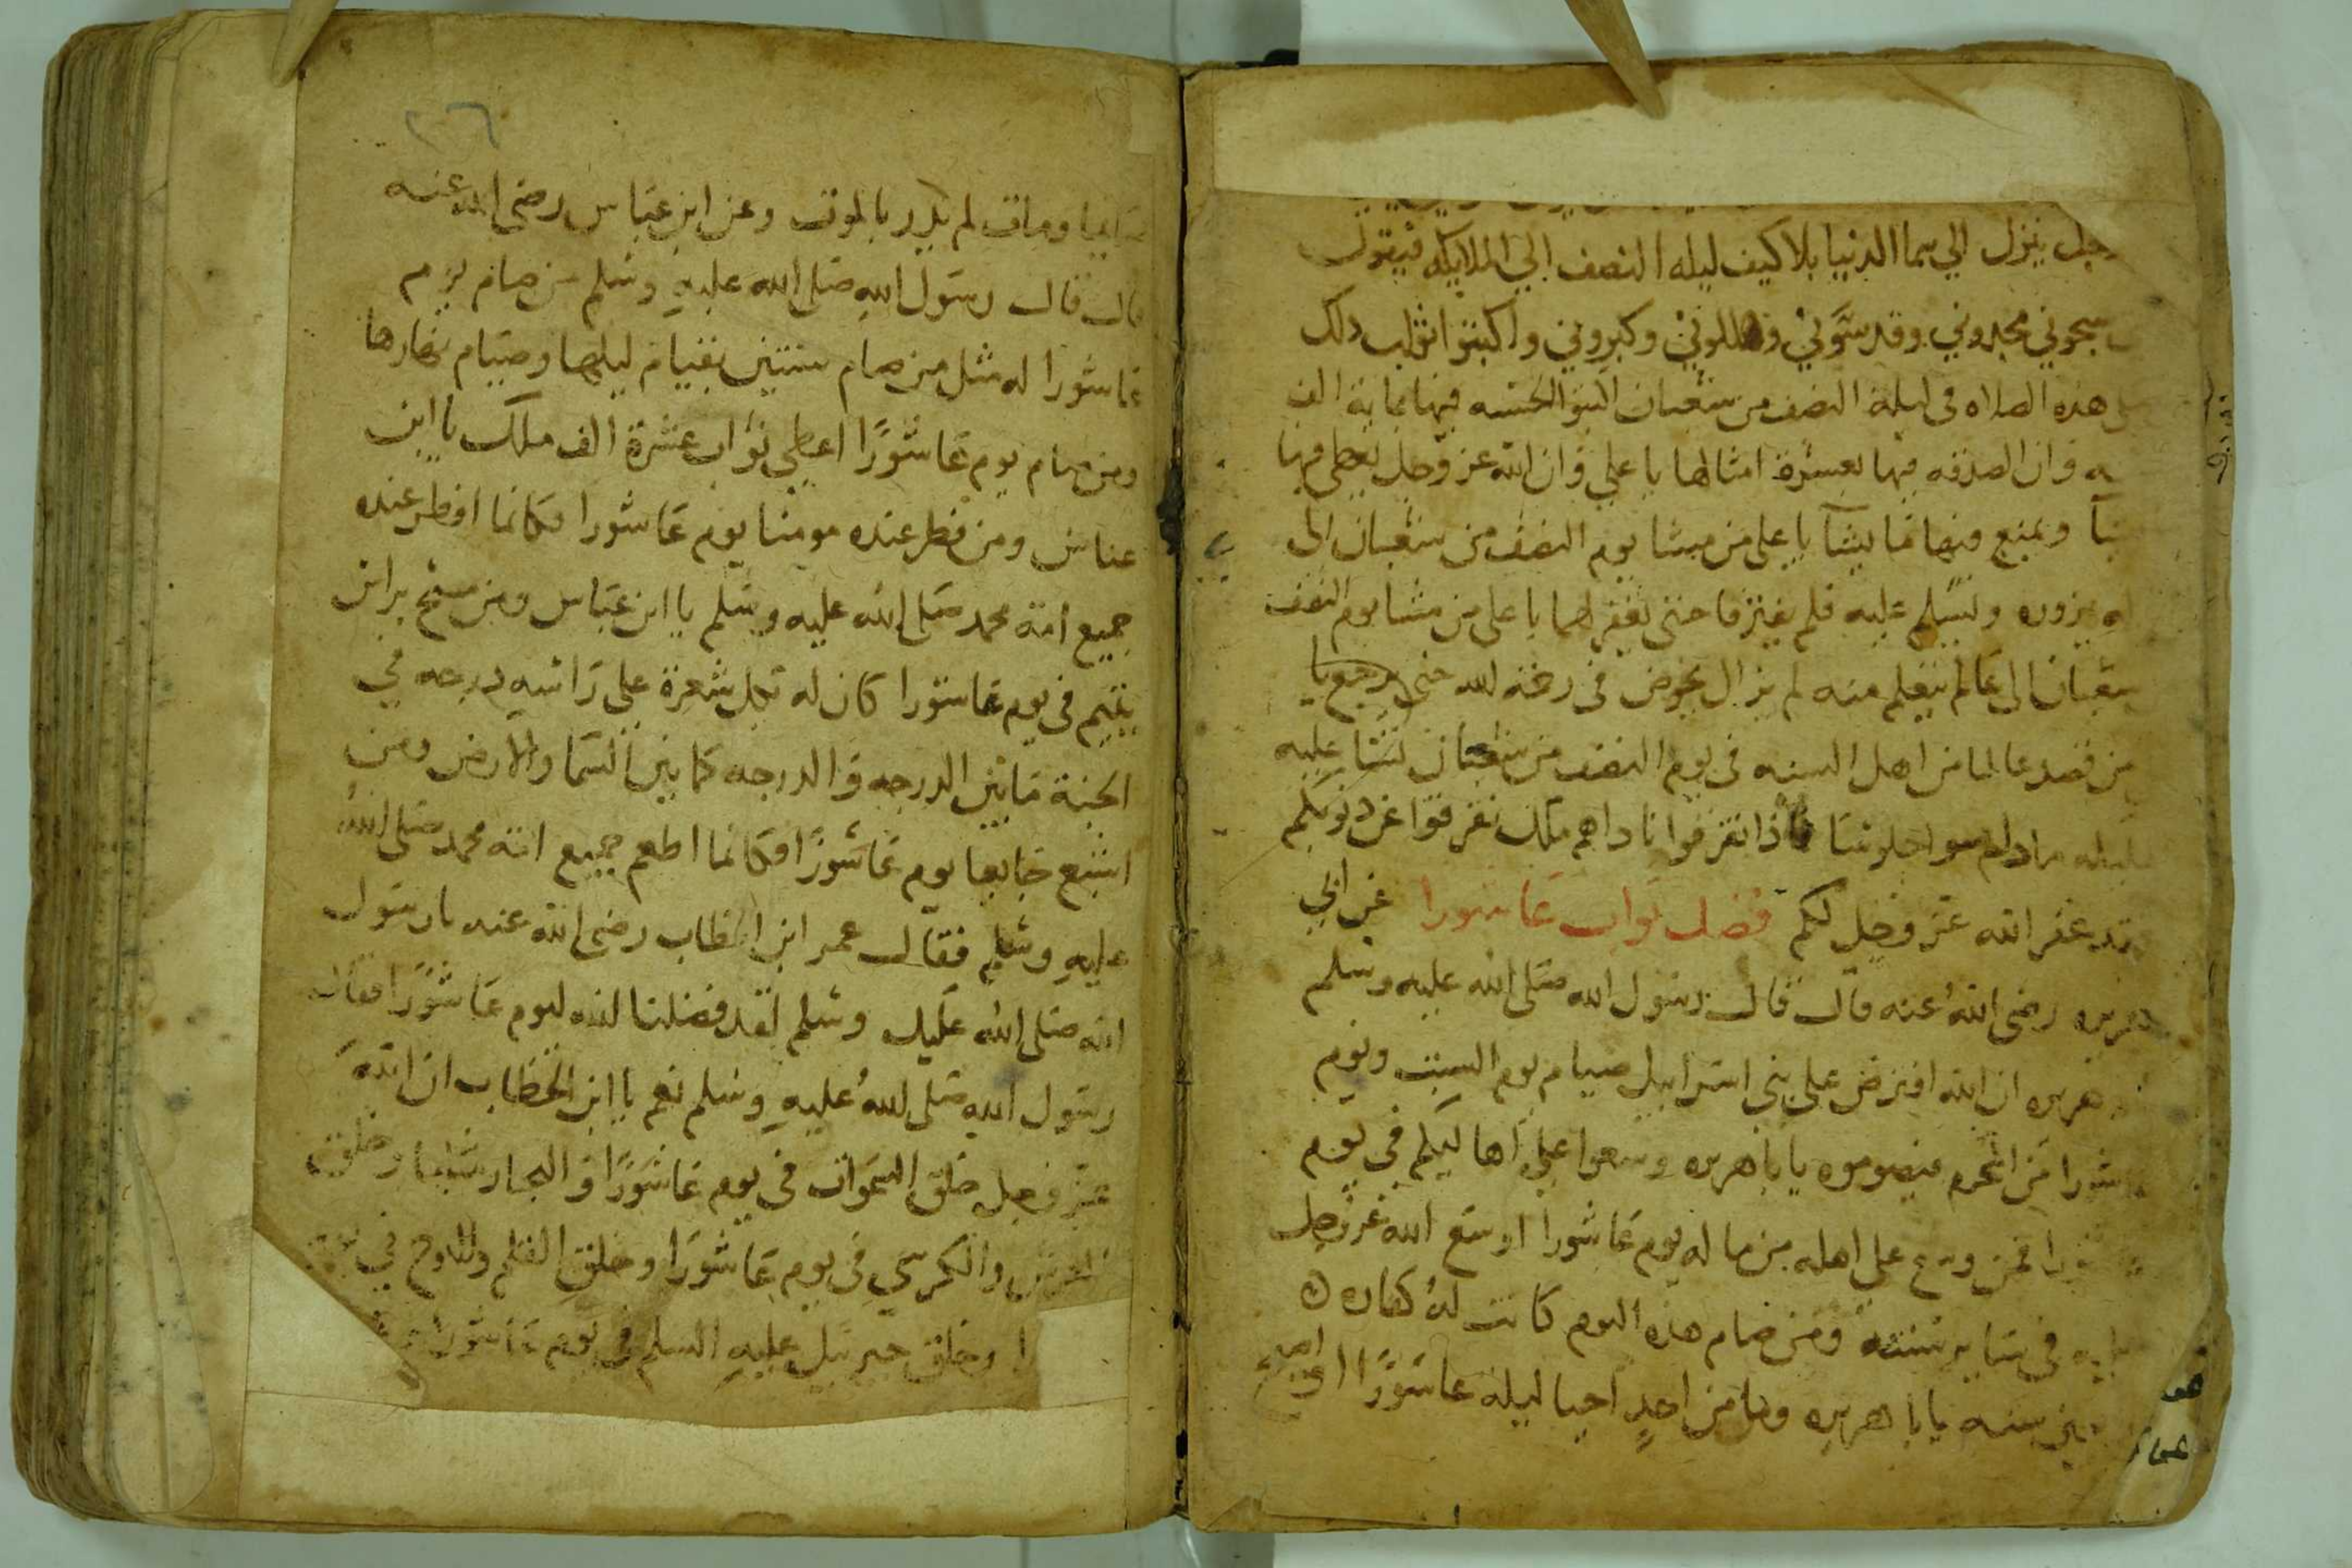 وجل ينزل الي سما الدنيا بلا كيف ليله النصف الي الملايكه فيقول
سبحوني مجدوني وقدسوني وهللوني وكبروني واكتبوا ثواب ذلك
هذه الصلاه في ليلة النصف من شعبان البنو الحسنه فيها بماية الف
وان الصدقه فيها بعشرة امثالها يا علي وان الله عز وجل يعطي فيها
ويمنع فيها ما يشآ يا علي من مشا يوم النصف من شعبان الي
يزوره ويسلم عليه فلم يفترقا حتى يغفر لهما يا علي من مشا يوم النصف
شعبان الى عالم يتعلم منه لم يزال يخوض في رحمة الله حتى يرجع يا
من قصد عالما من اهل السنه في يوم النصف من شعبان
ما داموا جلوسا فاذا تفرقوا ناداهم ملك تفرقوا عن ذنوبكم
قد غفر الله عز وجل لكم فضل ثواب عاشورا عن ابي
هريره رضى الله عنه قال قال رسول الله صلى الله عليه وسلم
هريره ان الله افترض على بني اسرائيل صيام يوم السبت ويوم
عاشورا من المحرم فيصوموه يا با هريره وسعوا على اهاليكم في يوم
عاشورا فمن وسع على اهله من ماله يوم عاشورا اوسع الله عز وجل
في ساير سنته ومن صام هذه اليوم كانت له كفاره
سنه يا با هريره وما من احد احيا ليله عاشورًا
٢٦
ومات لم يدر بالموت وعن ابن عباس رضى الله عنه
قال قال رسول الله صلى الله عليه وسلم من صام يوم
عاشورا له مثل من صام سنتين بقيام ليلها وصيام نهارها
ومن صام يوم عاشورًا اعطي ثواب عشرة الف ملك يا ابن
عباس ومن فطر عنده مومنا يوم عاشورا فكانما افطر عنده
جميع امة محمد صلى الله عليه وسلم يا ابن عباس ومن مسح براس
يتيم في يوم عاشورا كان له بكل شعرة على راسه درجه في
الجنة ما بين الدرجه والدرجه كما بين السما والارض ومن
اشبع جايعا يوم عاشورًا فكانما اطعم جميع امة محمد صلى الله
عليه وسلم فقال عمر ابن الخطاب رضى الله عنه يا رسول
الله صلى الله عليك وسلم لقد فضلنا الله ليوم عاشورًا فقال
رسول الله صلى الله عليه وسلم نعم يا ابن الخطاب ان الله
عز وجل خلق السموات في يوم عاشورًا والبحار وخلق
العرش والكرسي في يوم عاشورا وخلق القلم واللوح في
وخلق جبريل عليه السلم في يوم عاشورا